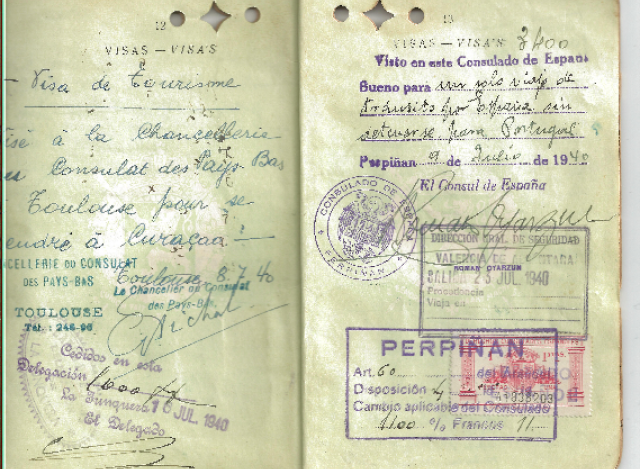 12
VISAS — VISA'S
Visa de tourisme
Visé à la Chancellerie
Consulat des Pays-Bas
Toulouse pour se
rendre à Curaçao —
CELLERIE DU CONSULAT
DES PAYS-BAS
TOULOUSE
Tél : 246-96
Toulouse 8.7.40
Le Chancelier du Consulat
des Pays-Bas,
Cedidos en esta
Delegación
La Junquera 10 JUL. 1940
El Delegado
13
VISAS — VISA'S
3400
Visto en este Consulado de España
Bueno para un solo viaje de
tránsito por España sin
detenerse para Portugal
Perpiñan 9 de Julio de 1940
El Consul de España
CONSULADO DE ESPAÑA
PERPIÑAN
DIRECCION GRAL. DE SEGURIDAD
VALENCIA DE ALCANTARA
ROMAN OYARZUN
SALIDA 23 JUL 1940
Procedencia
Viaja en
PERPIÑAN
Art. 60 del Arancel
Disposición 4
Cambio aplicable del Consulado
1100 % Francos 11